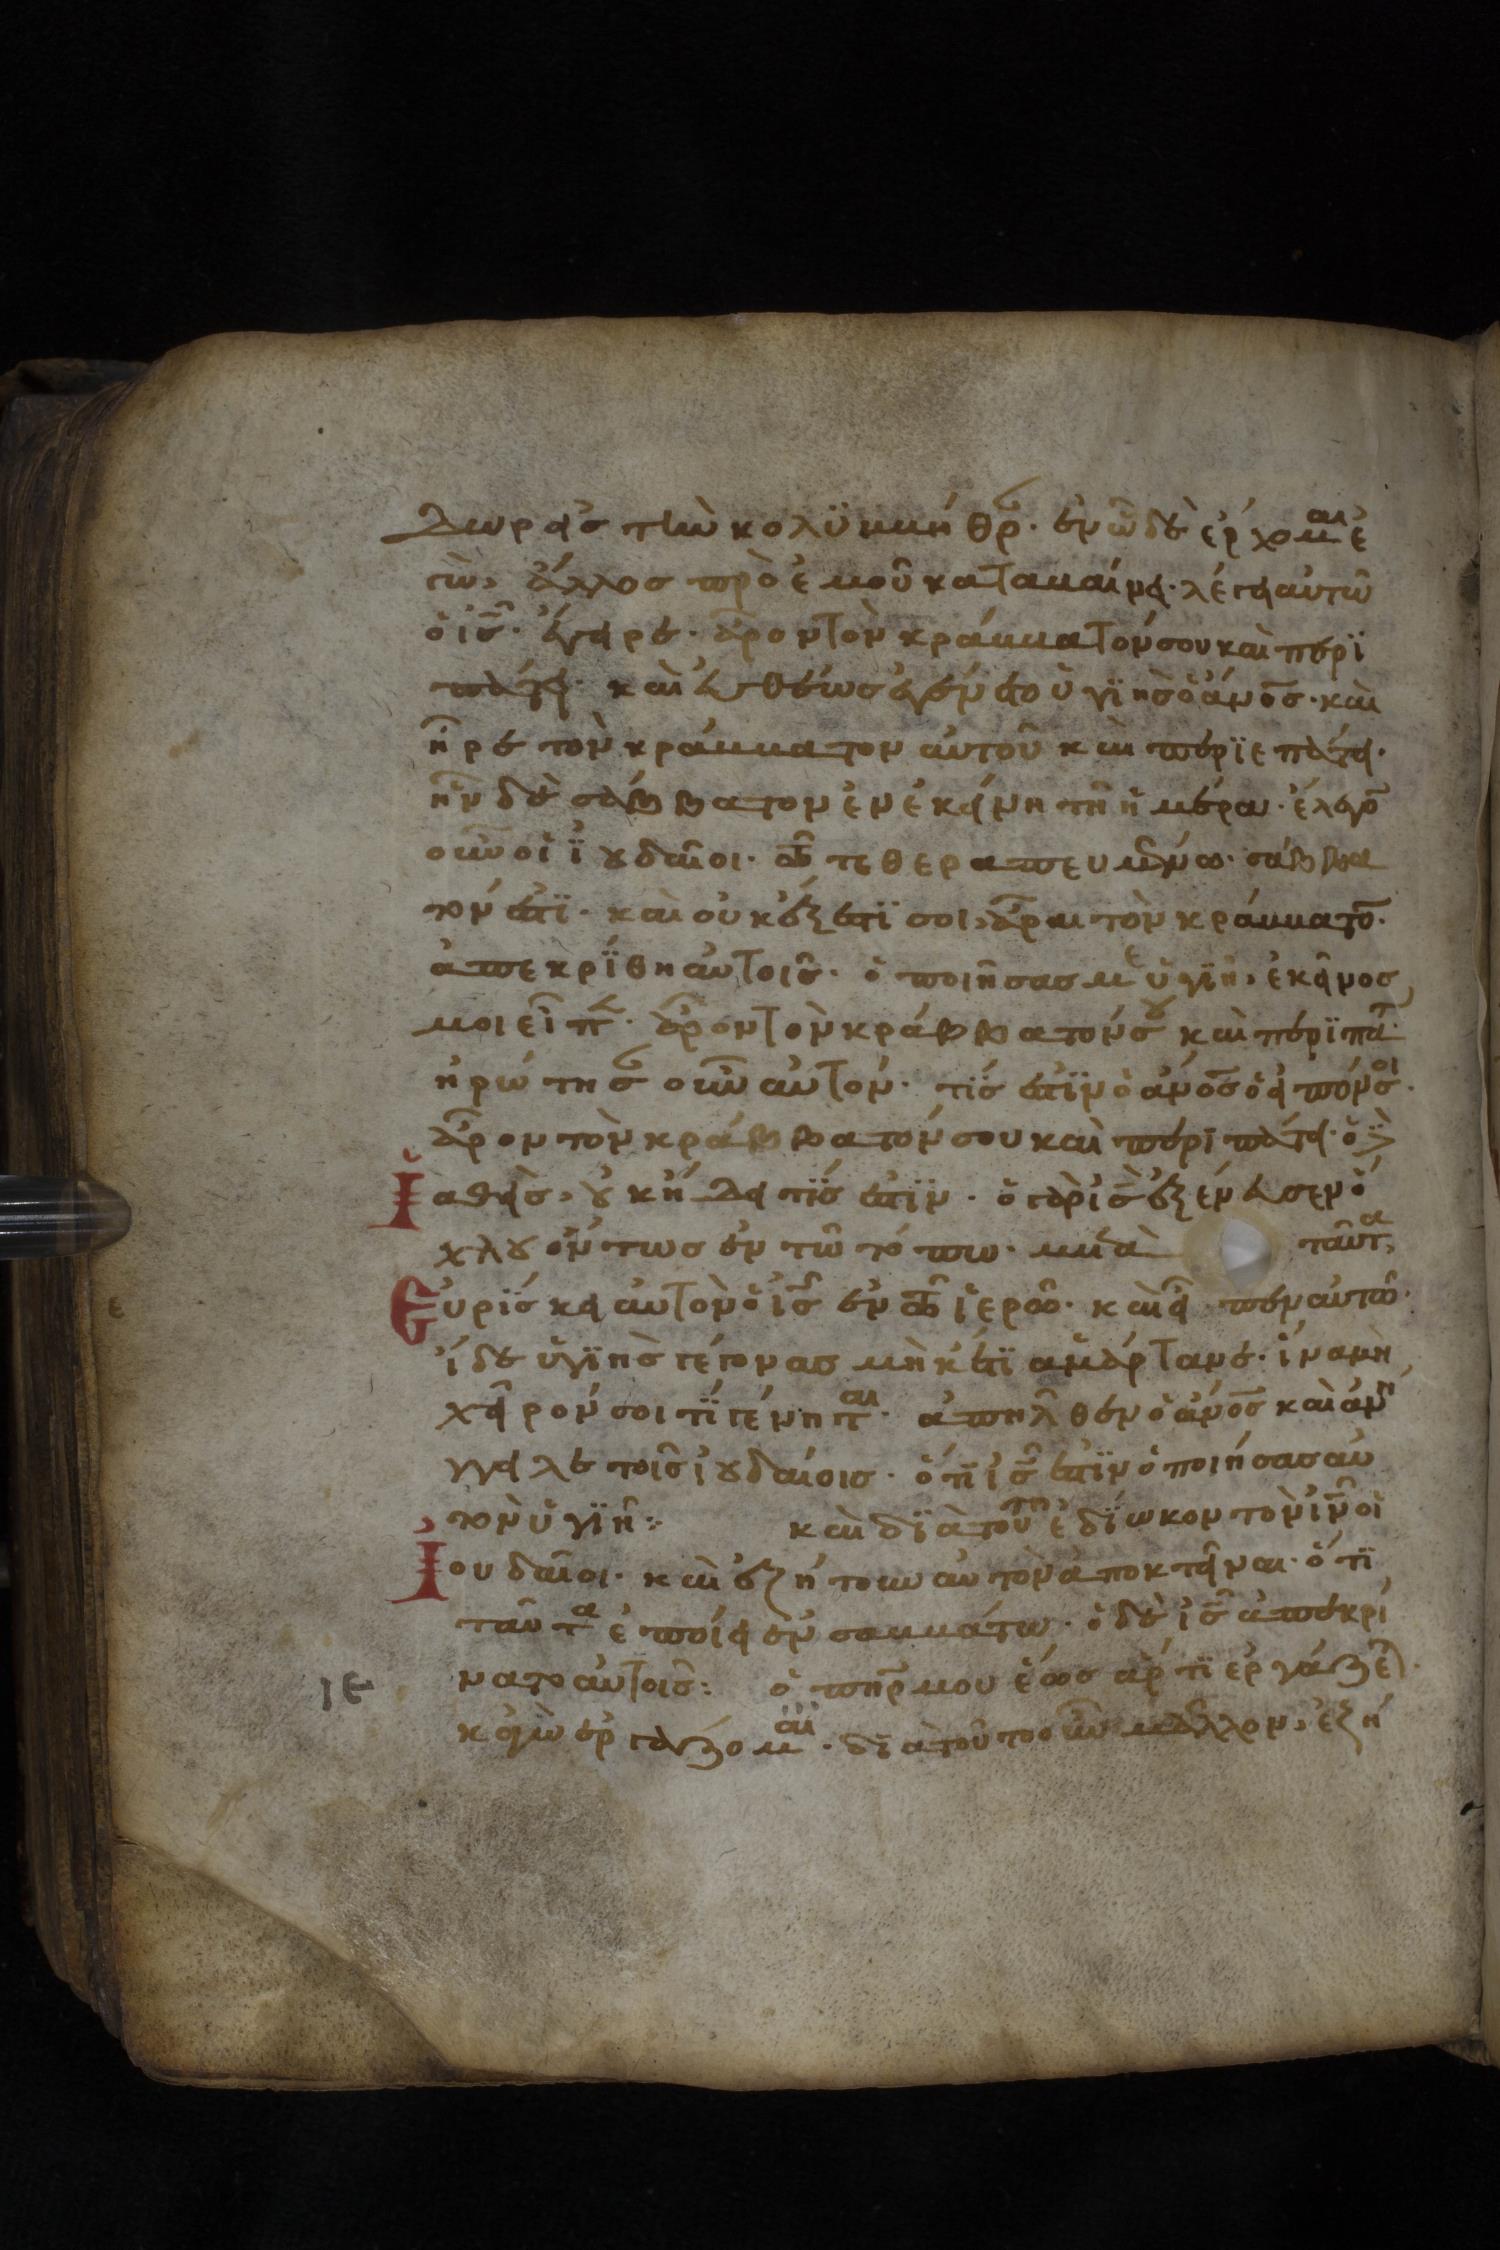 δωρ εἰσ τὴν κολϋμβήθρ. ἐν ὧ δὲ ἐρχομαι ἐ
γὼ, ἄλλοσ πρὸ ἐμοῦ καταβαίνει. λέγει αὐτῶ
ὁ ις. ἔγειρε. ἆρον τὸν κράββατόν σου καὶ περϊ
πάτει. καὶ εὐθέωσ ἐγένετο ὑγϊησ ὁ ἄνοσ. και
ἦρε τὸν κράββατον αὐτοῦ καὶ περϊεπάτει.
ἦν δὲ σάββατον ἐν ἐκείνη τῆ ἡμέρα. ἔλεγο
οὖν οἱ ϊουδαῖοι. τῶ τεθεραπευμένω. σάββα
τόν ἐστϊ. καὶ οὐκ ἔξεστϊ σοι, ἆραι τὸν κράββατο.
ἀπεκρϊθη αὐτοισ. ὁ ποιῆσασ με ὑγϊῆ, ἐκεῖνοσ
μοι εἶπ. ἆρον τὸν κράββατόν σου καὶ περϊπατ.
ἠρώτησ οὖν αὐτόν. τϊσ ἐστϊν ὁ ἄνοσ ὁ εἰπών σοι.
ἆρον τὸν κράββατόν σου καὶ περιπάτει. ὁ δὲ
ἰαθεὶσ, οὐκ ἤδει τϊσ ἐστϊν. ὁ γὰρ ισ ἐξένευσεν ὄ
χλου ὄντωσ ἐν τῶ τόπω. μετὰ ταῦτα,
Εὑρϊσκει αὐτὸν ὁ ισ ἐν τῶ ἱερῶ. καὶ εἶπεν αὐτῶ.
ἴδε ὑγϊησ γέγονασ μὴκέτϊ ἁμάρτανε. ἵνα μὴ
χεῖρόν σοι τϊ γένηται. ἀπῆλθεν ὁ ἄνοσ καὶ ἀνή
γγειλε τοῖσ ἰουδαίοισ. ὅτϊ ισ ἐστϊν ὁ ποιήσασ αὐ
τὸν ὑγϊῆ: καὶ δϊὰ τοῦτο ἐδϊωκον τὸν ιν οἱ
Ιουδαῖοι. καὶ ἐζήτουν αὐτὸν ἀποκτεῖναι. ὅτϊ
ταῦτα ἐποίει ἐν σαββάτω. ὁ δὲ ισ ἀπεκρί
νατο αὐτοῖσ: ὁ πηρ μου ἕωσ ἄρτϊ ἐργάζε.
ΙΕ
κἀγὼ ἐργάζομαι. δϊὰ τοῦτο οὖν μᾶλλον, ἐζή